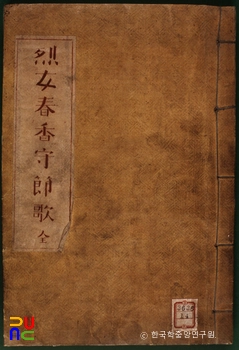 烈女春香守節歌 全
© 한국학중앙연구원